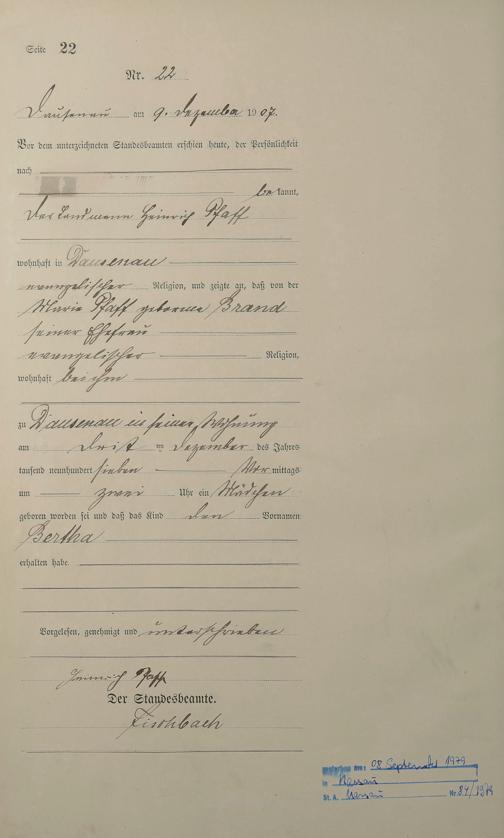 Seite 22
Nr. 22
Dausenau am 9. Dezember 1907.
Vor dem unterzeichneten Standesbeamten erschien heute, der Persönlichkeit
nach
bekannt,
Der Landmann Heinrich Pfaff
wohnhaft in Dausenau
evangelischer Religion, und zeigte an, daß von der
Marie Pfaff geborene Brand
seiner Ehefrau
evangelischer Religion,
wohnhaft bei ihm
zu Dausenau in seiner Wohnung
am Dezember des Jahres
tausend neunhundert sieben Vor mittags
um zwei Uhr ein Mädchen
geboren worden sei und daß das Kind den Vornamen
Bertha
erhalten habe.
Vorgelesen, genehmigt und unterschrieben
Heinrich Pfaff
Der Standesbeamte.
Fischbach
08 September 1979
in Nassau
St. A. Nassau Nr. 84/1979